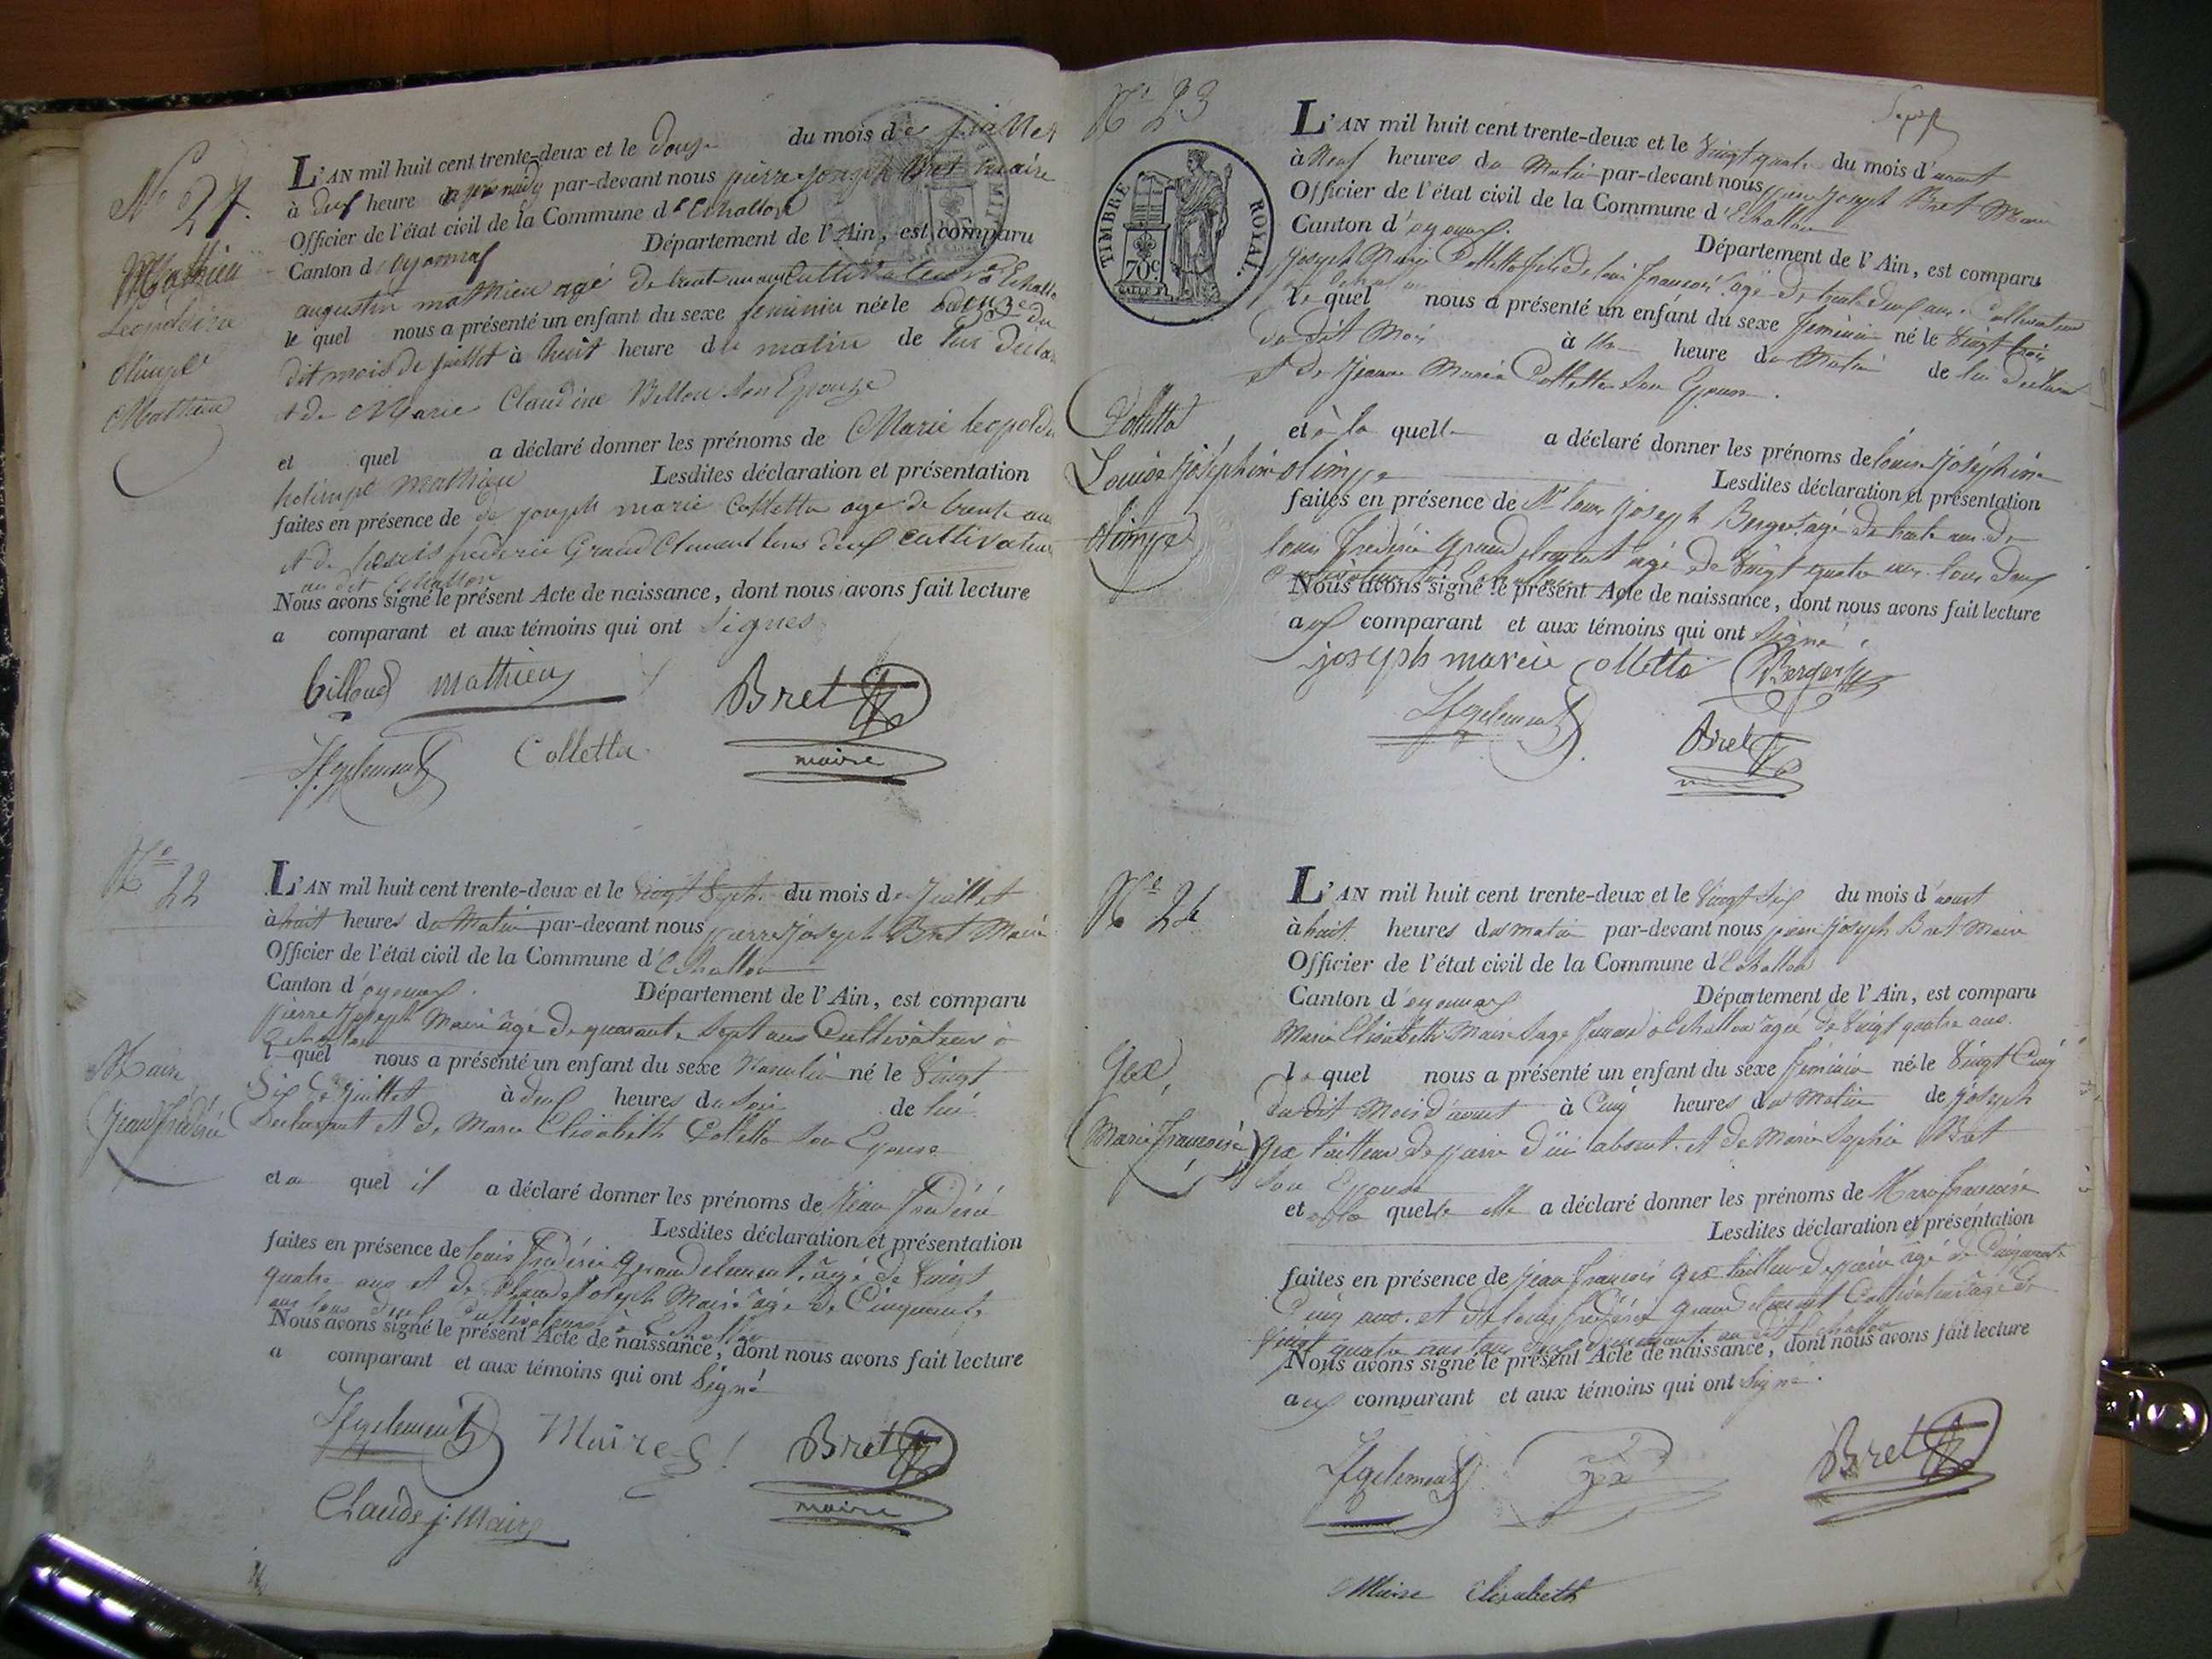 No 21.
L'AN mil huit cent trente-deux et le douze du mois de juillet
à deux heure après midy par-devant nous pierre joseph Bret maire
Officier de l'état civil de la Commune d'Echallon
Canton d'oyonnax Département de l'Ain, est comparu
augustin mathieu agé de trente un ans Cultivateur à Echallon
le quel nous a présenté un enfant du sexe feminin née le douze du
dit mois de juillet à huit heure du matin de lui déclarant
et de Marie Claudine Bellou son Epouse
et quel a déclaré donner les prénoms de Marie leopoldi
holimpe mathieu Lesdites déclaration et présentation
faites en présence de de joseph marie Colletta age de trente ans
et de louis frederic Grand Clement tous deux cultivateurs
au dit Echallon
Nous avons signé le présent Acte de naissance, dont nous avons fait lecture
a comparant et aux témoins qui ont signés
Mathieu
Leopoldine
Olimpe
Mathieu
billoud mathieu Bret
Lfgclement Colletta maire
No 22
L'AN mil huit cent trente-deux et le vingt Sept du mois de Juillet
à huit heures du Matin par-devant nous pierre Joseph Bret Maire
Officier de l'état civil de la Commune d'Echallon
Canton d'oyonnax. Département de l'Ain, est comparu
pierre Joseph Maire âgé de quarante Sept ans Cultivateur à
Echallon
le quel nous a présenté un enfant du sexe Masculin né le Vingt
Six de Juillet à deux heures du Soir de lui
Declarant et de Marie Elisabeth Colletta son Epouse
et a quel il a déclaré donner les prénoms de Jean Frédéric
Lesdites déclaration et présentation
faites en présence de louis Frédéric grand clement, âgé de Vingt
quatre ans et de Claude Joseph Maire âgé de Cinquante
ans tous deux Cultivateurs à Echallon
Nous avons signé le présent Acte de naissance, dont nous avons fait lecture
a comparant et aux témoins qui ont Signé
Maire
Jean Frédéric
Lfgclement Maire Bret
Claude j. Maire maire
No 23
TIMBRE ROYAL.
70c
L'AN mil huit cent trente-deux et le Vingt quatre du mois d'aoust
à Neuf heures du Matin par-devant nous pierre Joseph Bret Maire
Officier de l'état civil de la Commune d'Echallon
Canton d'oyonnax. Département de l'Ain, est comparu
Joseph Marie Colletta fils de louis François âgé de trente deux ans Cultivateur
le quel nous a présenté un enfant du sexe Feminin né le Vingt trois
du dit Mois à Une heure du Matin de lui Declarant
et de Jeanne Marie Colletta Son Epouse.
et à la quelle a déclaré donner les prénoms de louise Joséphine
olimpe Lesdites déclaration et présentation
faites en présence de Sr louis Joseph Berger âgé de trente ans de
louis Frederic Grand clement âgé de Vingt quatre ans tous deux
Cultivateurs à Echallon
Nous avons signé le présent Acte de naissance, dont nous avons fait lecture
aux comparant et aux témoins qui ont Signé
Colletta
Louise Joséphine
Olimpe
joseph marie colletta Berger
Lfgclement Bret
maire
No 24
L'AN mil huit cent trente-deux et le Vingt Six du mois d'aoust
à huit heures du matin par-devant nous pierre Joseph Bret Maire
Officier de l'état civil de la Commune d'Echallon
Canton d'oyonnax Département de l'Ain, est comparu
Marie Elisabeth Maire Sage Femme à Echallon âgée de Vingt quatre ans.
la quel nous a présenté un enfant du sexe Féminin née le Vingt Cinq
du dit Mois d'aoust à Cinq heures du Matin de Joseph
Gex tailleur de pierre d'ici absent. et de Marie Sophie Bret
Son Epouse
et à la quelle elle a déclaré donner les prénoms de Marie françoise
Lesdites déclaration et présentation
faites en présence de Jean François Gex tailleur de pierre âgé de Cinquante
Cinq ans. et de louis frédéric grand clement Cultivateur âgé de
Vingt quatre ans tous deux demeurant au dit Echallon
Nous avons signé le présent Acte de naissance, dont nous avons fait lecture
aux comparant et aux témoins qui ont Signé.
Gex,
Marie françoise
Lfgclement Gex Bret
Maire Elisabeth